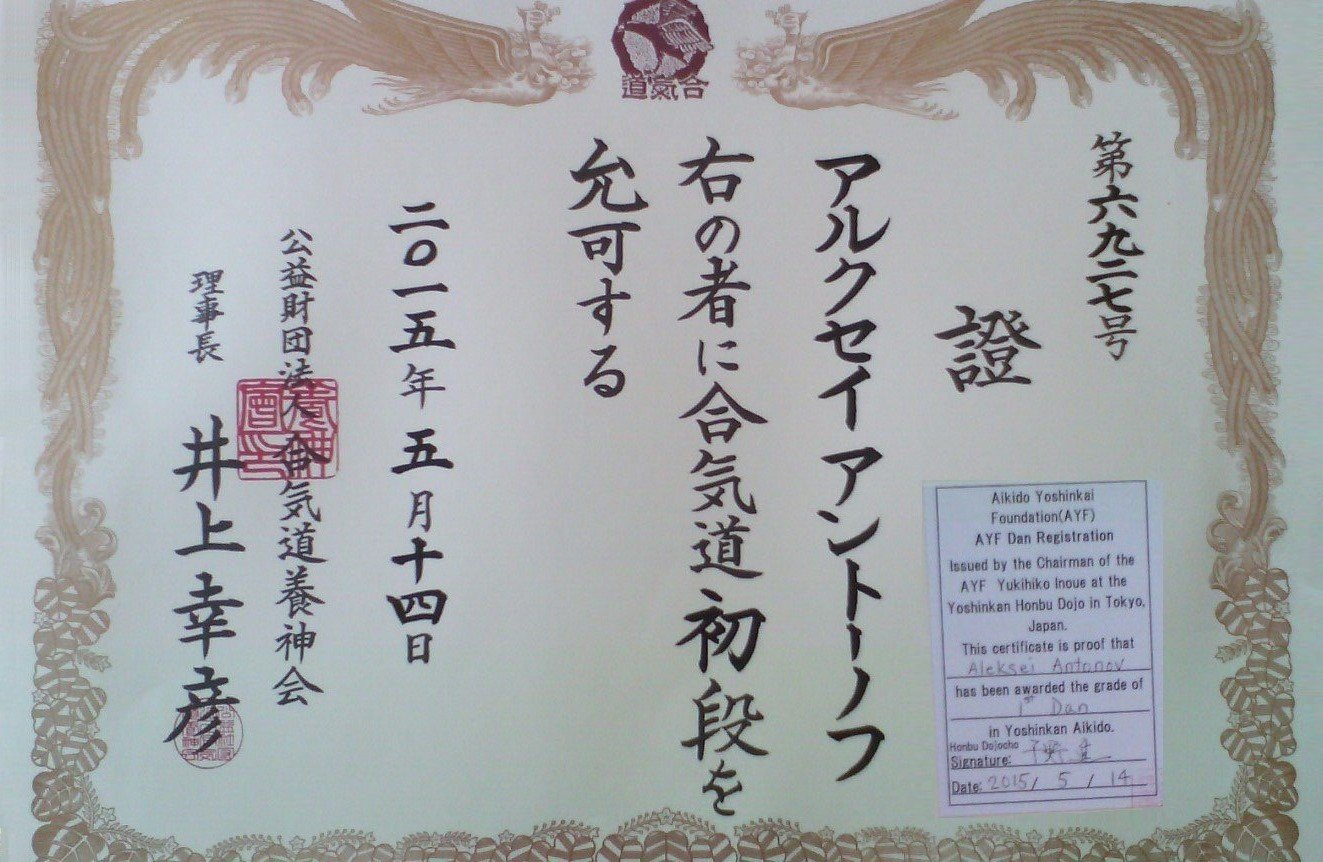 道氣合
第六九二七号
證
アルクセイアントーノフ
右の者に合気道初段を
允可する
二〇一五年五月十四日
公益財団法人合気道養神会
理事長 井上幸彦
Aikido Yoshinkai
Foundation(AYF)
AYF Dan Registration
Issued by the Chairman of the
AYF Yukihiko Inoue at the
Yoshinkan Honbu Dojo in Tokyo,
Japan.
This certificate is proof that
Aleksei Antonov
has been awarded the grade of
1st Dan
in Yoshinkan Aikido.
Honbu Dojocho
Signature:
Date: 2015/ 5 / 14